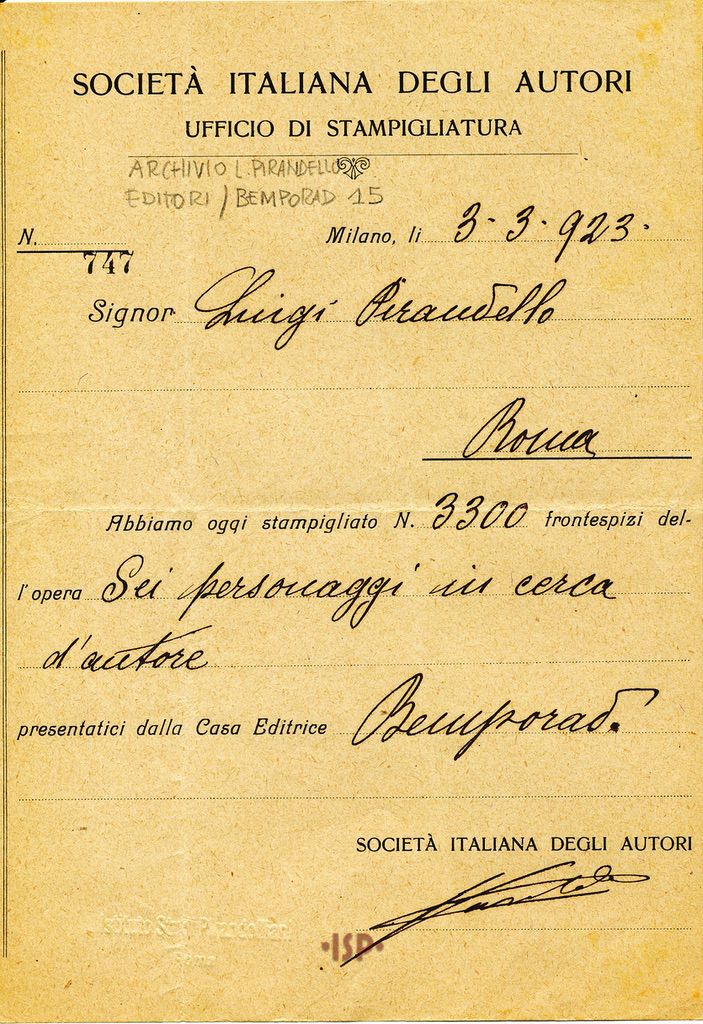 SOCIETÀ ITALIANA DEGLI AUTORI
UFFICIO DI STAMPIGLIATURA
ARCHIVIO L. PIRANDELLO
EDITORI / BEMPORAD 15
N. Milano, li 3. 3. 923.
747
Signor Luigi Pirandello
Roma
Abbiamo oggi stampigliato N. 3300 frontespizi del-
l'opera Sei personaggi in cerca
d'autore
presentatici dalla Casa Editrice Bemporad.
SOCIETÀ ITALIANA DEGLI AUTORI
Roma
•ISP•